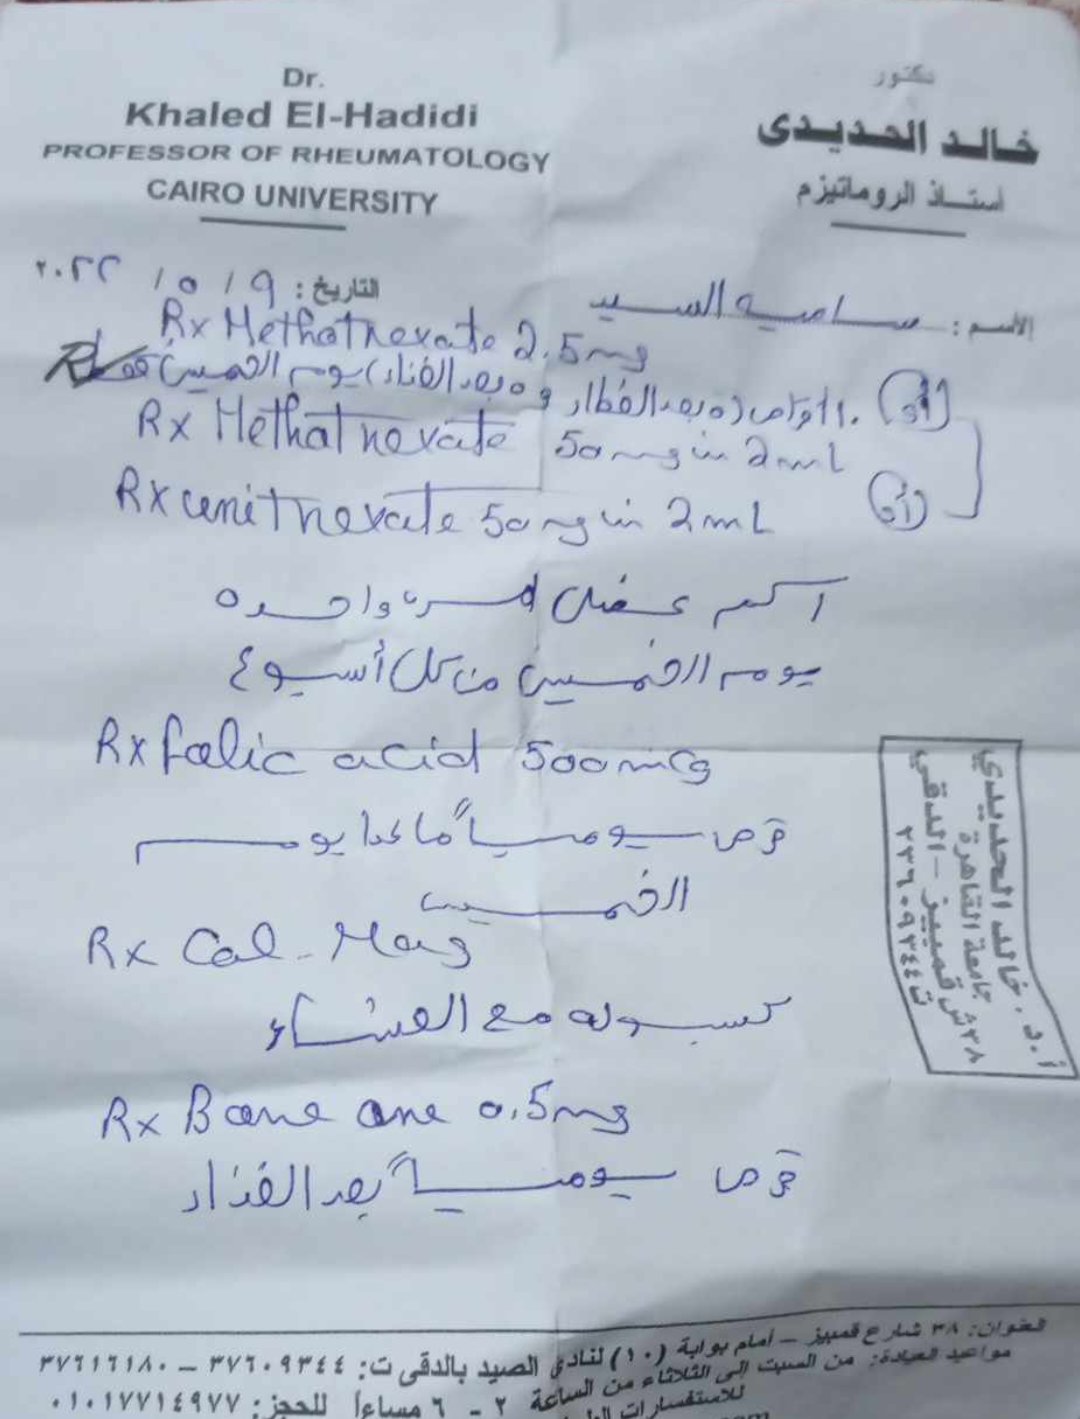 Dr.
Khaled El-Hadidi
PROFESSOR OF RHEUMATOLOGY
CAIRO UNIVERSITY
دكتور
خالد الحديدى
أستاذ الروماتيزم
الأسم : ساميه السيد
التاريخ : ٩ / ٥ / ٢٠٢٢
Rx Methotrexate 2.5mg
١٠ أقراص (٥ بعد الفطار و ٥ بعد الغداء) يوم الخميس فقط
(أو)
Rx Methotrexate 50mg in 2mL
(أو)
Rx unitrexate 50mg in 2mL
١ سم عضل مره واحده
يوم الخميس من كل أسبوع
Rx folic acid 500mcg
قرص يومياً ما عدا يوم
الخميس
Rx Cal-Mag
كبسوله مع العشاء
Rx Bone one 0.5mg
قرص يومياً بعد الغداء
أ.د. خالد الحديدي
جامعة القاهرة
٣٨ش قمبيز - الدقي
ت ٣٣٦٠٩٣٤٤
العنوان: ٣٨ شارع قمبيز – أمام بوابة (١٠) لنادى الصيد بالدقى ت: ٣٧٦٠٩٣٤٤ – ٣٧٦١٦١٨٠
مواعيد العيادة: من السبت إلى الثلاثاء من الساعة ٢ - ٦ مساءاً للحجز: ٠١٠١٧٧١٤٩٧٧
للاستفسارات